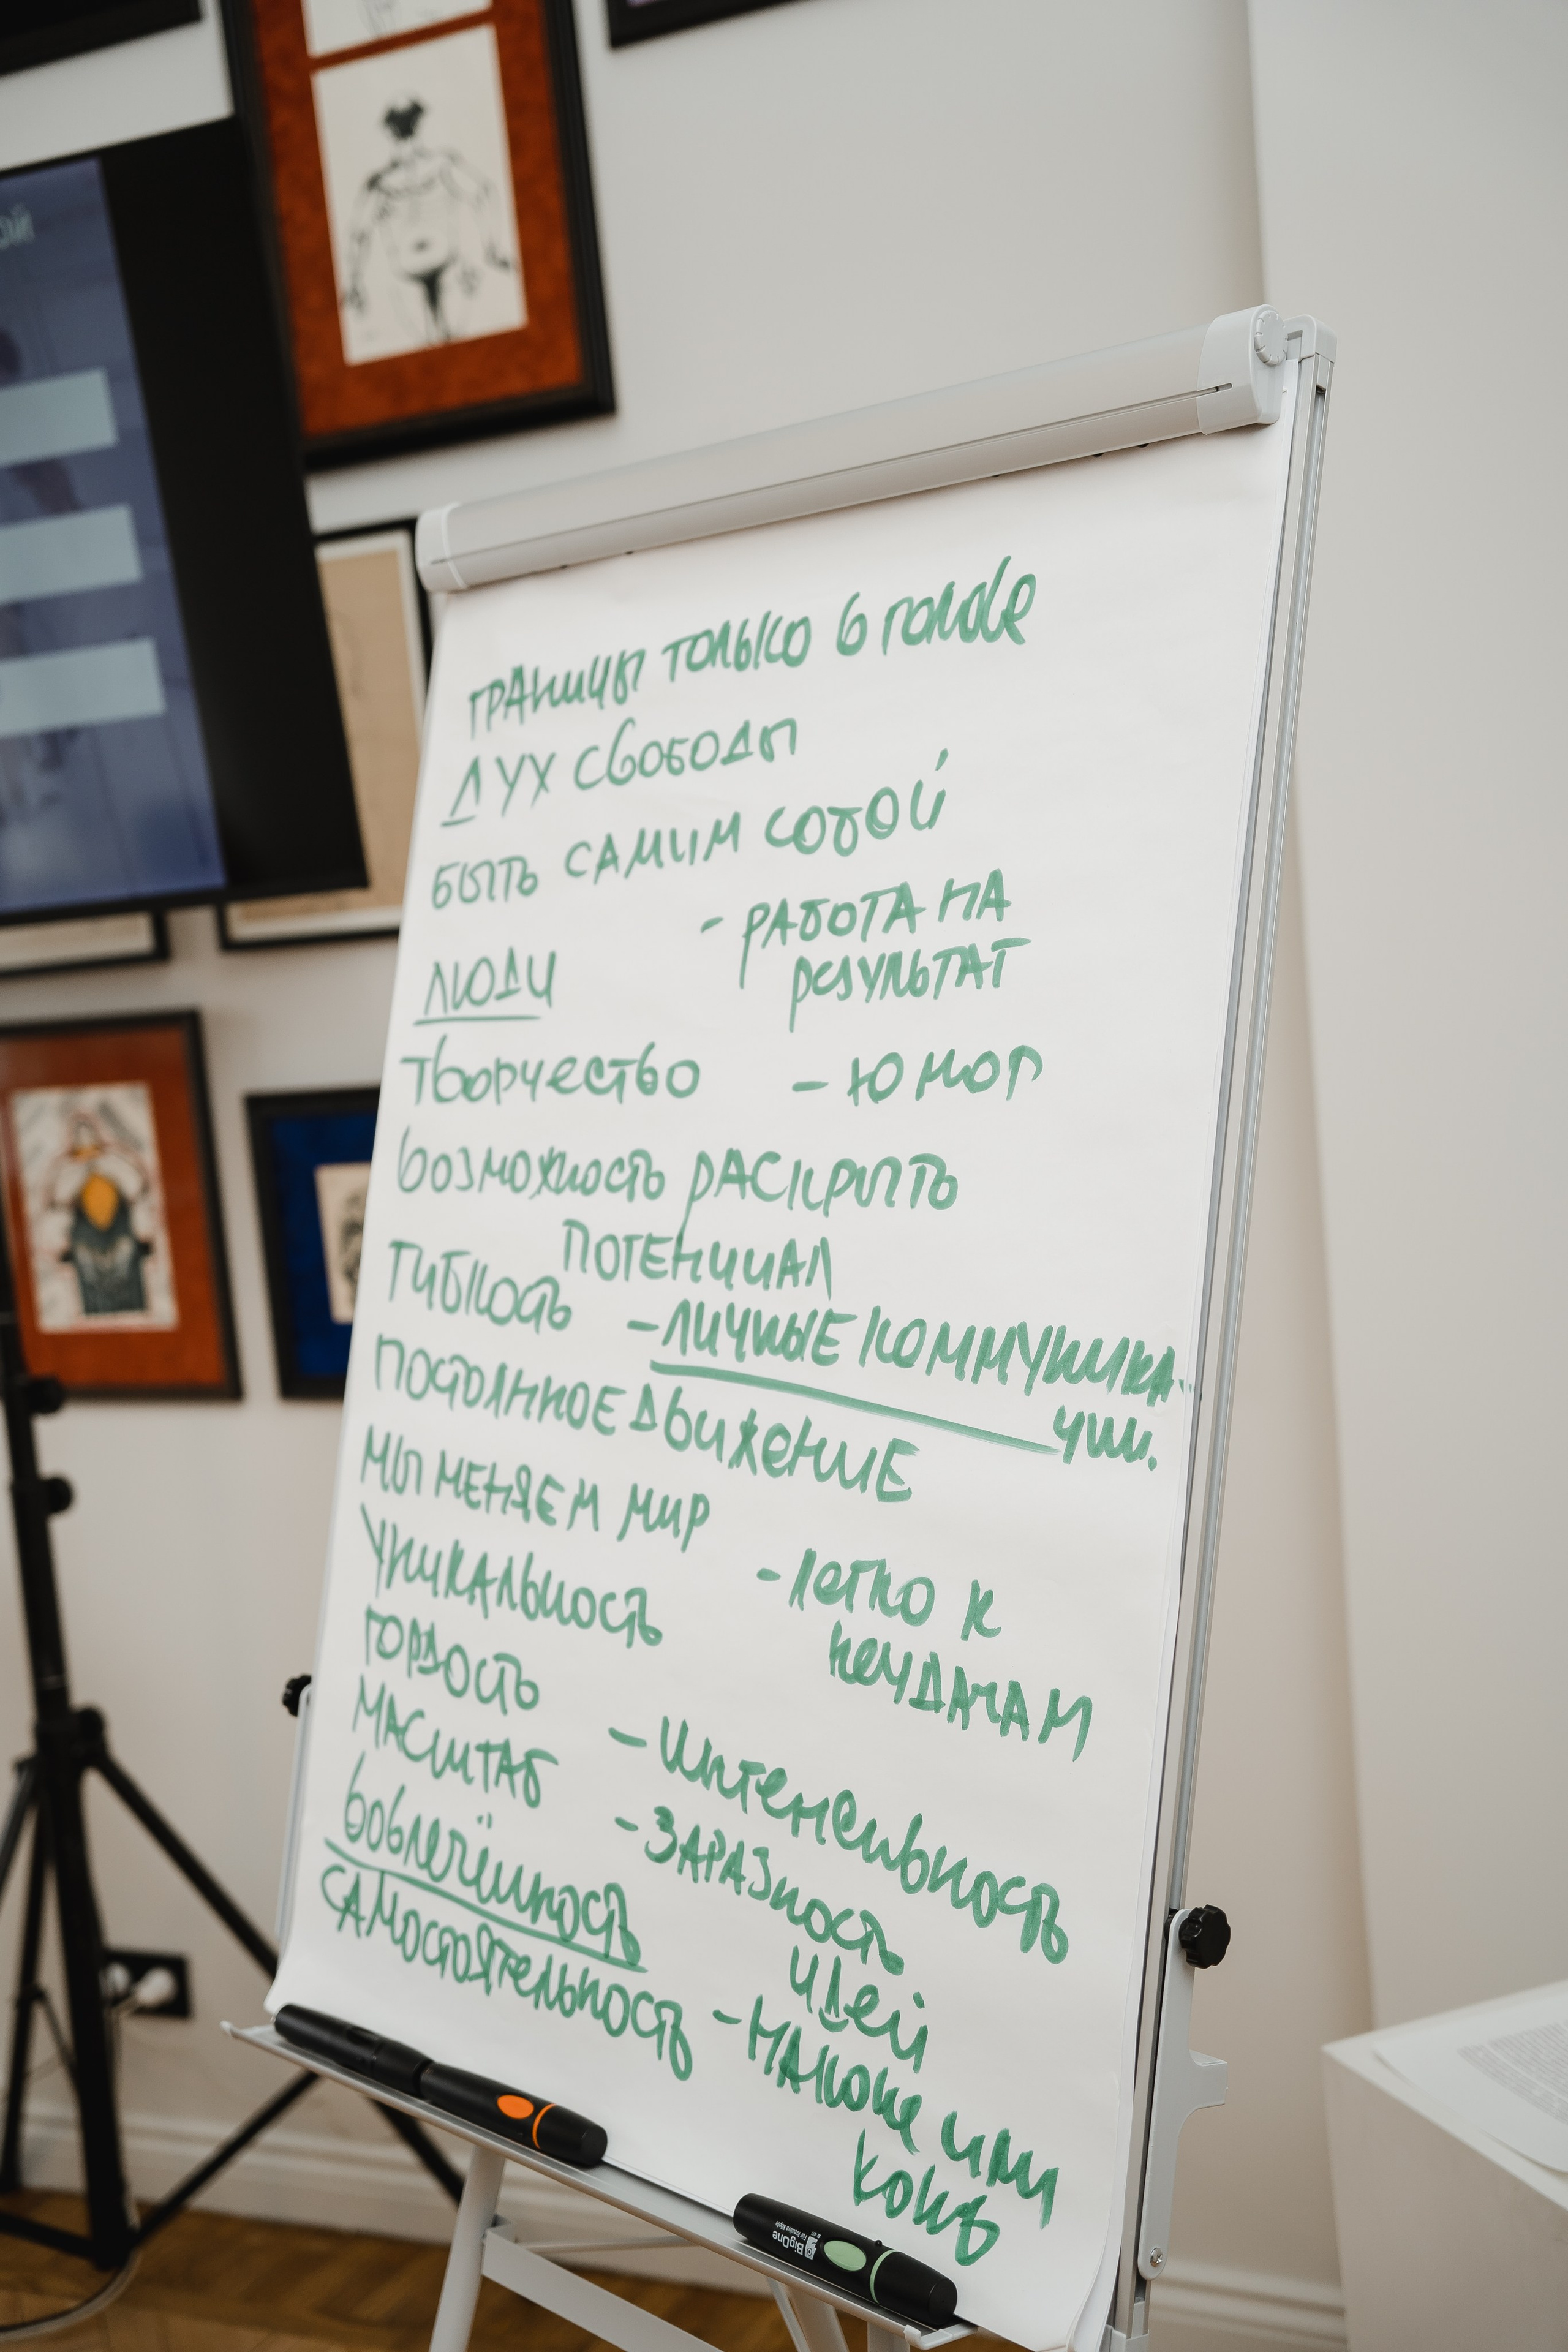 ой
ГРАНИЦЫ ТОЛЬКО В ГОЛОВЕ
ДУХ СВОБОДЫ
БЫТЬ САМИМ СОБОЙ
- РАБОТА НА
РЕЗУЛЬТАТ
ЛЮДИ
ТВОРЧЕСТВО - ЮМОР
ВОЗМОЖНОСТЬ РАСКРЫТЬ
ПОТЕНЦИАЛ
ГИБКОСТЬ - ЛИЧНЫЕ КОММУНИКА-
ЦИИ.
ПОСТОЯННОЕ ДВИЖЕНИЕ
МЫ МЕНЯЕМ МИР
УНИКАЛЬНОСТЬ - ЛЕГКО К
НЕУДАЧАМ
ГОРДОСТЬ
МАСШТАБ - ИНТЕНСИВНОСТЬ
ВОВЛЕЧЁННОСТЬ - ЗАРАЗНОСТЬ
ИДЕЙ
САМОСТОЯТЕЛЬНОСТЬ - НА КОНЕ ИЛИ
КОНЬ
BigOne